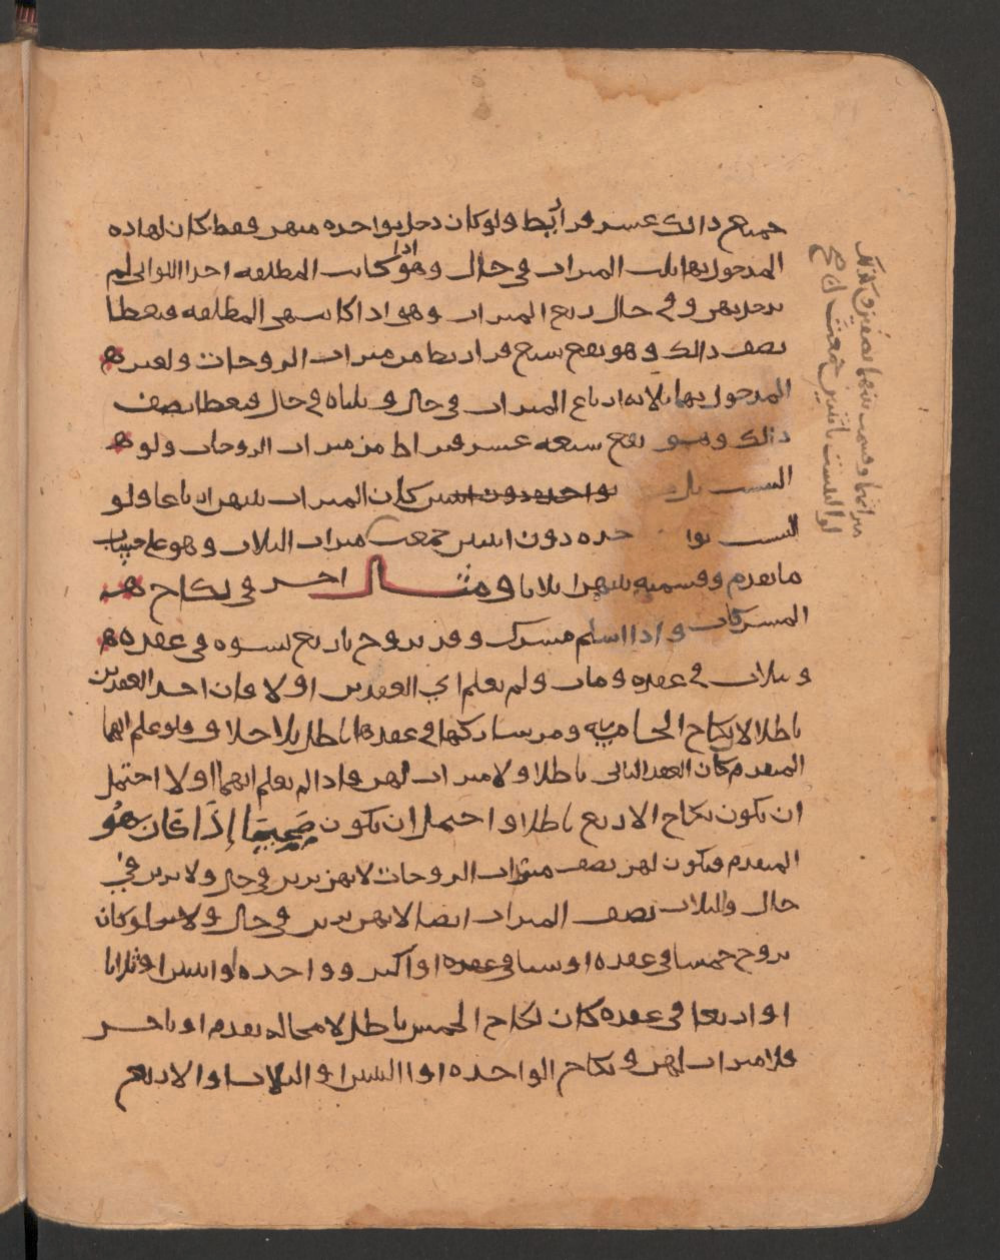 جميع ذالك عشر قراريط ولو كان دخل بواحده منهن فقط كان لهاذه
المدخول بها ثلث الميراث في حال وهو اذا كانت المطلقه احدا اللواتي لم
يدخل بهن وفي حال ربع الميراث وهو اذا كانت هي المطلقه فتعطا
نصف ذالك وهو سبع قراريط من ميراث الزوجات ولغير ه
المدخول بها ثلاثه ارباع الميراث في حال وثلثاه في حال فتعطا نصف
ذلك وهو سبعه عشر قيراط من ميراث الزوجات ولو ه
التبست بواحده دون اثنتين كان الميراث بينهن ارباعا ولو
التبست بواحده دون اثنتين جمعت ميراث الثلاث وهو على حساب
ما تقدم وقسمته بينهن اثلاثا ومثال اخر في نكاح ه
المشركات واذا اسلم مشرك وقد تزوج باربع نسوه في عقده ه
وبثلاث في عقده ومات ولم يعلم اي العقدين اولا فان احد العقدين
باطلا لان نكاح الخامسه ومن شاركها في عقدها باطل بلا خلاف فلو علم ايهما
المتقدم كان العقد الثاني باطلا ولا ميراث لهن فاذا لم يعلم ايهما اولا احتمل
ان يكون نكاح الاربع باطلا واحتمل ان يكون صَحِيحًا إِذَا كَانَ هُو
المتقدم فيكون لهن نصف ميراث الزوجات لانهن يرثن في حال ولا يرثن في
حال وللثلاث نصف الميراث ايضا لانهن يرثن في حال ولا ولو كان
تزوج خمسا في عقده او ستا في عقده او اكثر وواحده او اثنتين او ثلاثا
او اربعا في عقده كان نكاح الخمس باطل لا محاله تقدم او تاخر
فلا ميراث لهن ونكاح الواحده او الثنتين او الثلاث او الاربع
ميراثها وقسمت بينهما نصفين وكذلك
لو التبست باثنتين جمعت